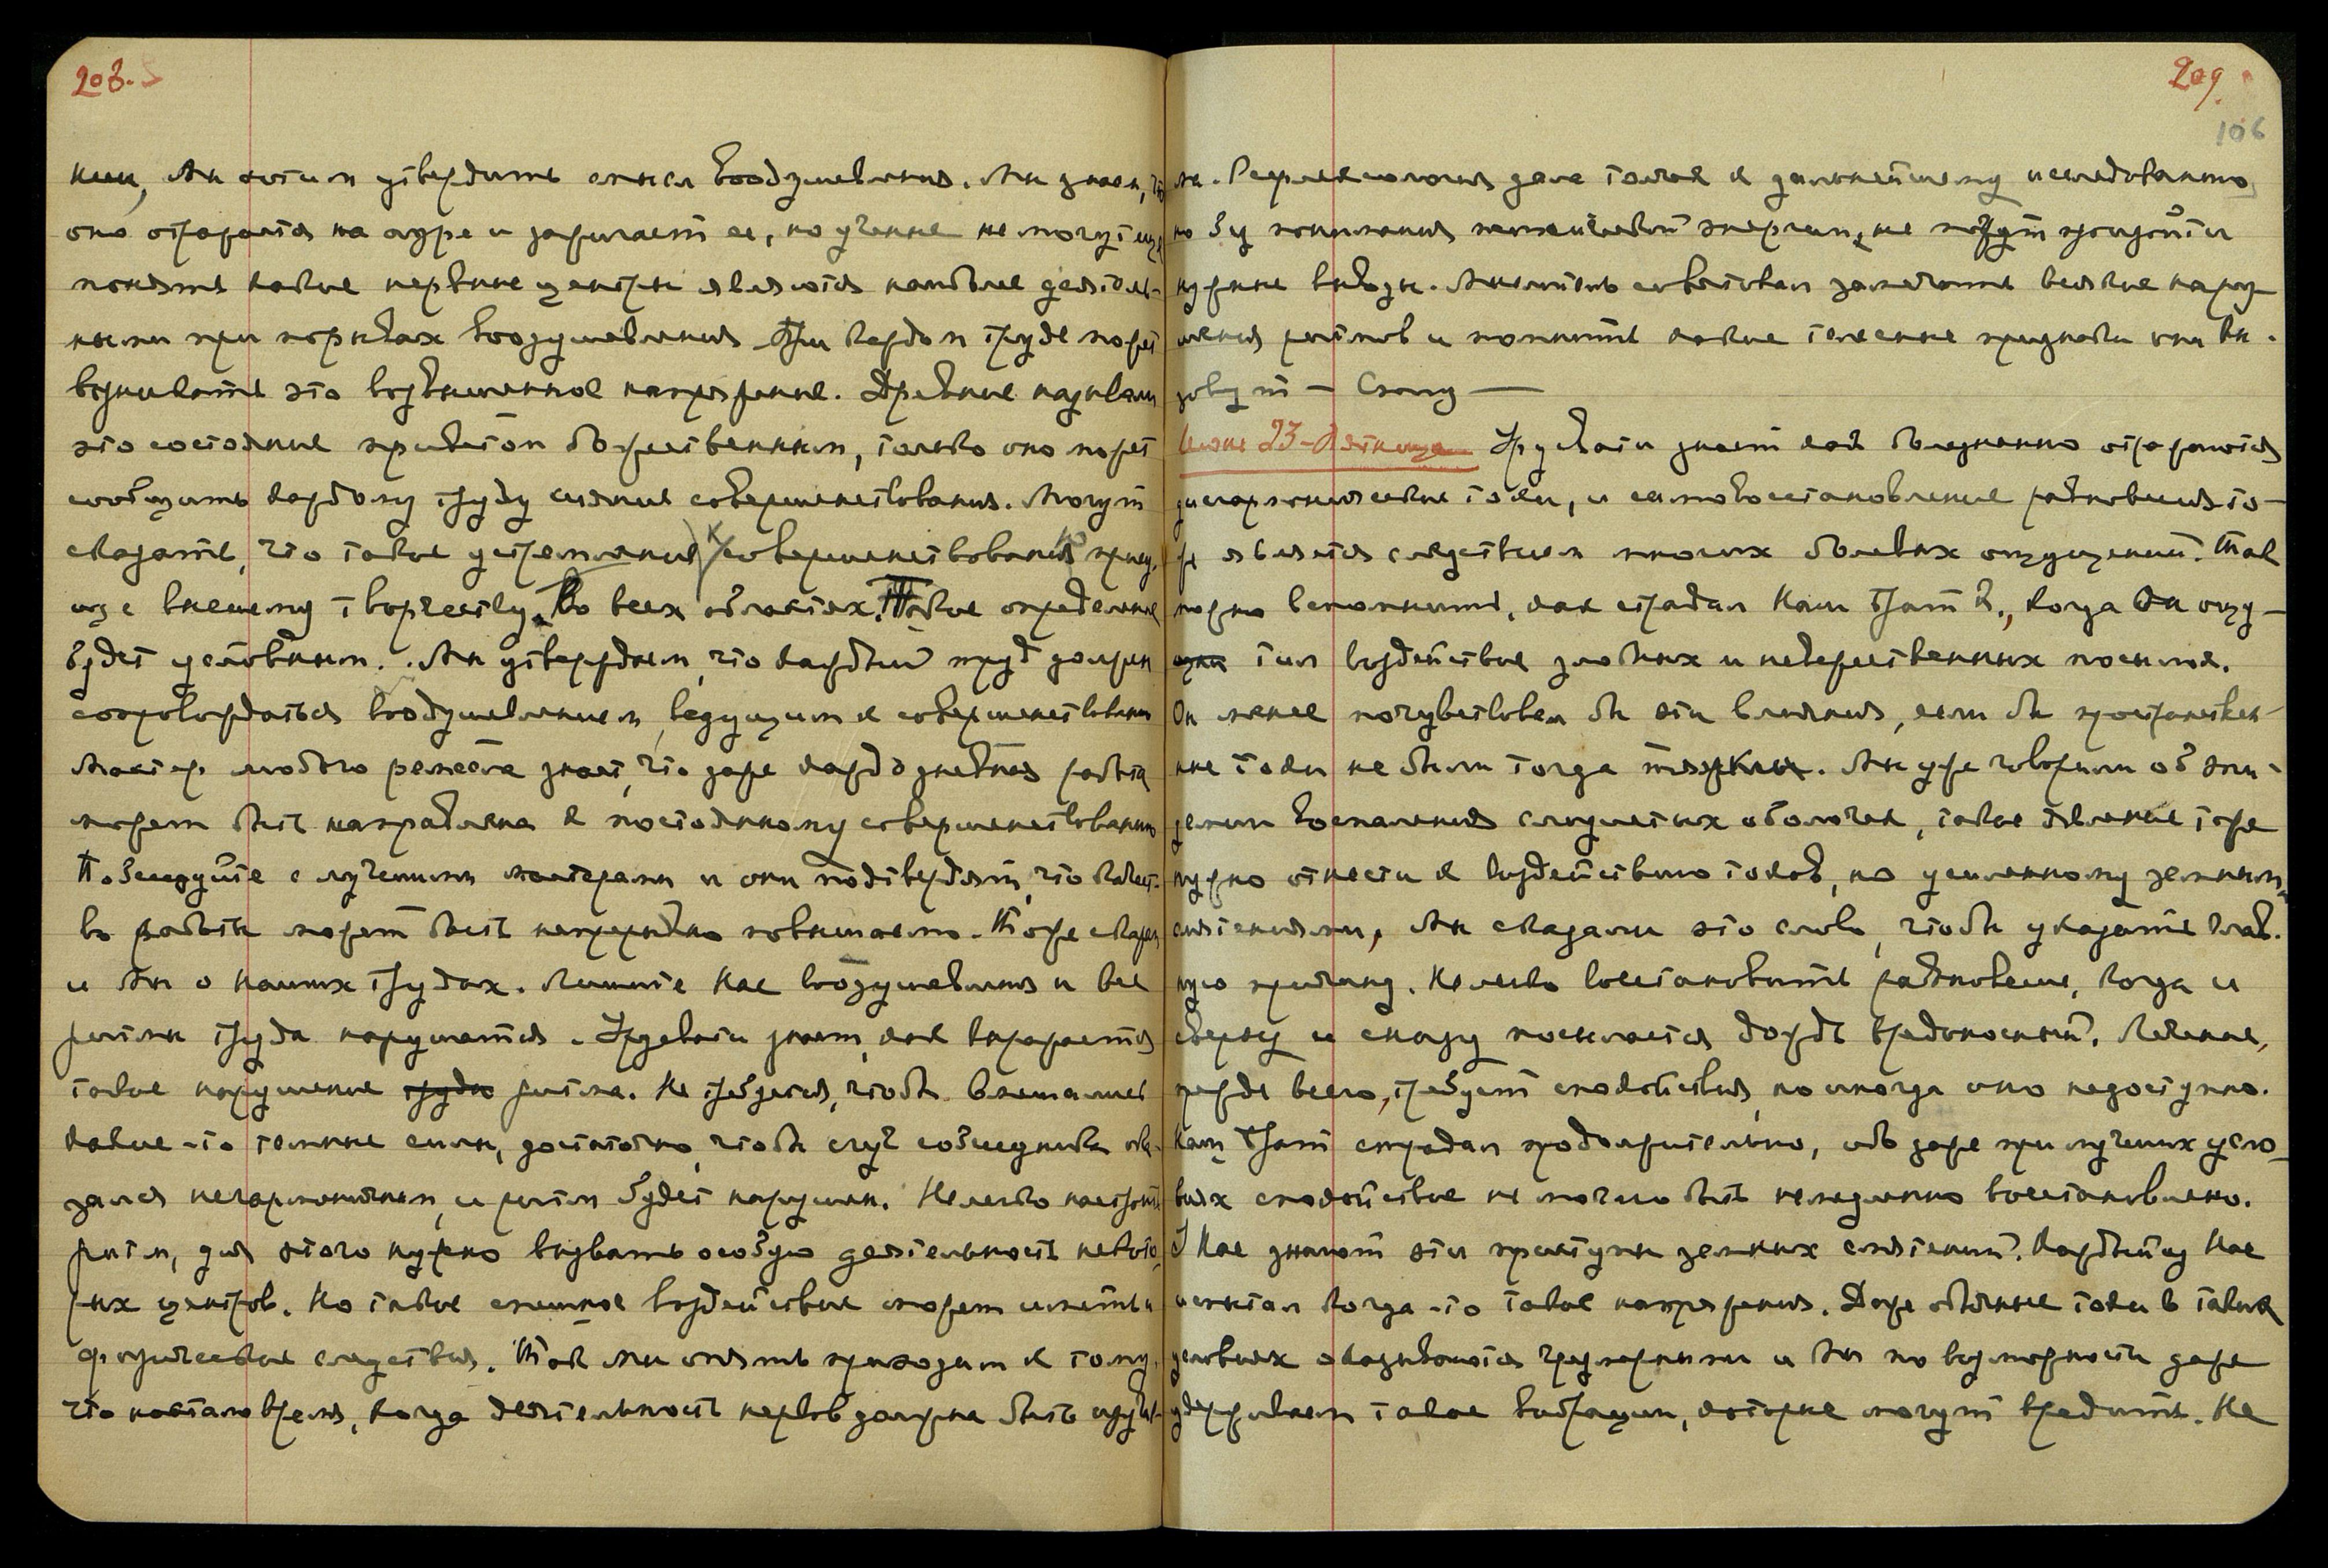 208.
ким, Мы хотим утвердить смысл воодушевления. Мы знаем, что
оно отражается на ауре и зажигает ее, но ученые не могут еще
понять какие нервные центры являются наиболее деятель-
ными при порывах воодушевления. При каждом труде может
возникать это возвышенное напряжение. Древние называли
это состояние приветом божественным, только оно может
сообщить каждому труду сияние совершенствования. Могут
сказать, что такое устремление к совершенствованию
внешнему творчеству. Во всех областях. Такое определение
будет условным. Мы утверждаем, что каждый труд должен
сопровождаться воодушевлением, ведущим к совершенствованию
Мастер любого ремесла знает, что даже каждодневная работа
может быть направлена к постоянному совершенствованию
Побеседуйте с лучшими мастерами и они подтвердят, что качест-
во работы может быть непрерывно повышаемо. Тоже скажем
и Мы о наших трудах. Лишите нас воодушевления и все
ритмы труда нарушатся. Урусвати знает, как выражается
такое нарушение труда ритма. Не требуется, чтобы вмешались
какие-то темные силы, достаточно, чтобы стул собеседника ока-
зался негармоничным, и ритм будет нарушен. Нелегко настроить
ритм, для этого нужно вызвать особую деятельность некото-
рых центров. Но такое спешное воздействие может иметь и
физические следствия. Так мы опять приходим к тому,
что настало время, когда деятельность нервов должна быть изуча-
209.
106
ма. Рефлексология дала толчок к дальнейшему исследованию
но без понимания психической энергии, не могут произойти
нужные выводы. Мыслитель советовал замечать всякие нару-
шения ритмов и помнить какие телесные признаки они вы-
зовут —
Июнь 23-Пятница Урусвати знает как болезненно отражаются
дисгармонические токи, и самовосстановление равновесия то-
же является следствием многих болевых ощущений. Так
можно вспомнить, как страдал Наш Брат К., когда Он ощу-
щал там воздействие злобных и невежественных посылок.
Он менее почувствовал бы эти влияния, если бы пространствен-
ные токи не были тогда тяжкими. Мы уже говорили об эпи-
демии воспаления слизистых оболочек, такое явление тоже
нужно отнести к воздействию токов, но усиленному земными
смятениями, Мы сказали это слово, чтобы указать глав-
ную причину. Нелегко восстановить равновесие, когда и
сверху и снизу посылается дождь вредоносный. Лечение,
прежде всего, требует спокойствия, но иногда оно недоступно.
Наш Брат страдал продолжительно, ибо даже при лучших усло-
виях спокойствие не могло быть немедленно восстановлено.
У Нас знают эти приступы земных смятений. Каждый из Нас
испытал когда-то такое напряжение. Даже обычные токи в таких
условиях оказываются чрезмерными и Мы по возможности даже
удерживаем такие вибрации, которые могут вредить. Не